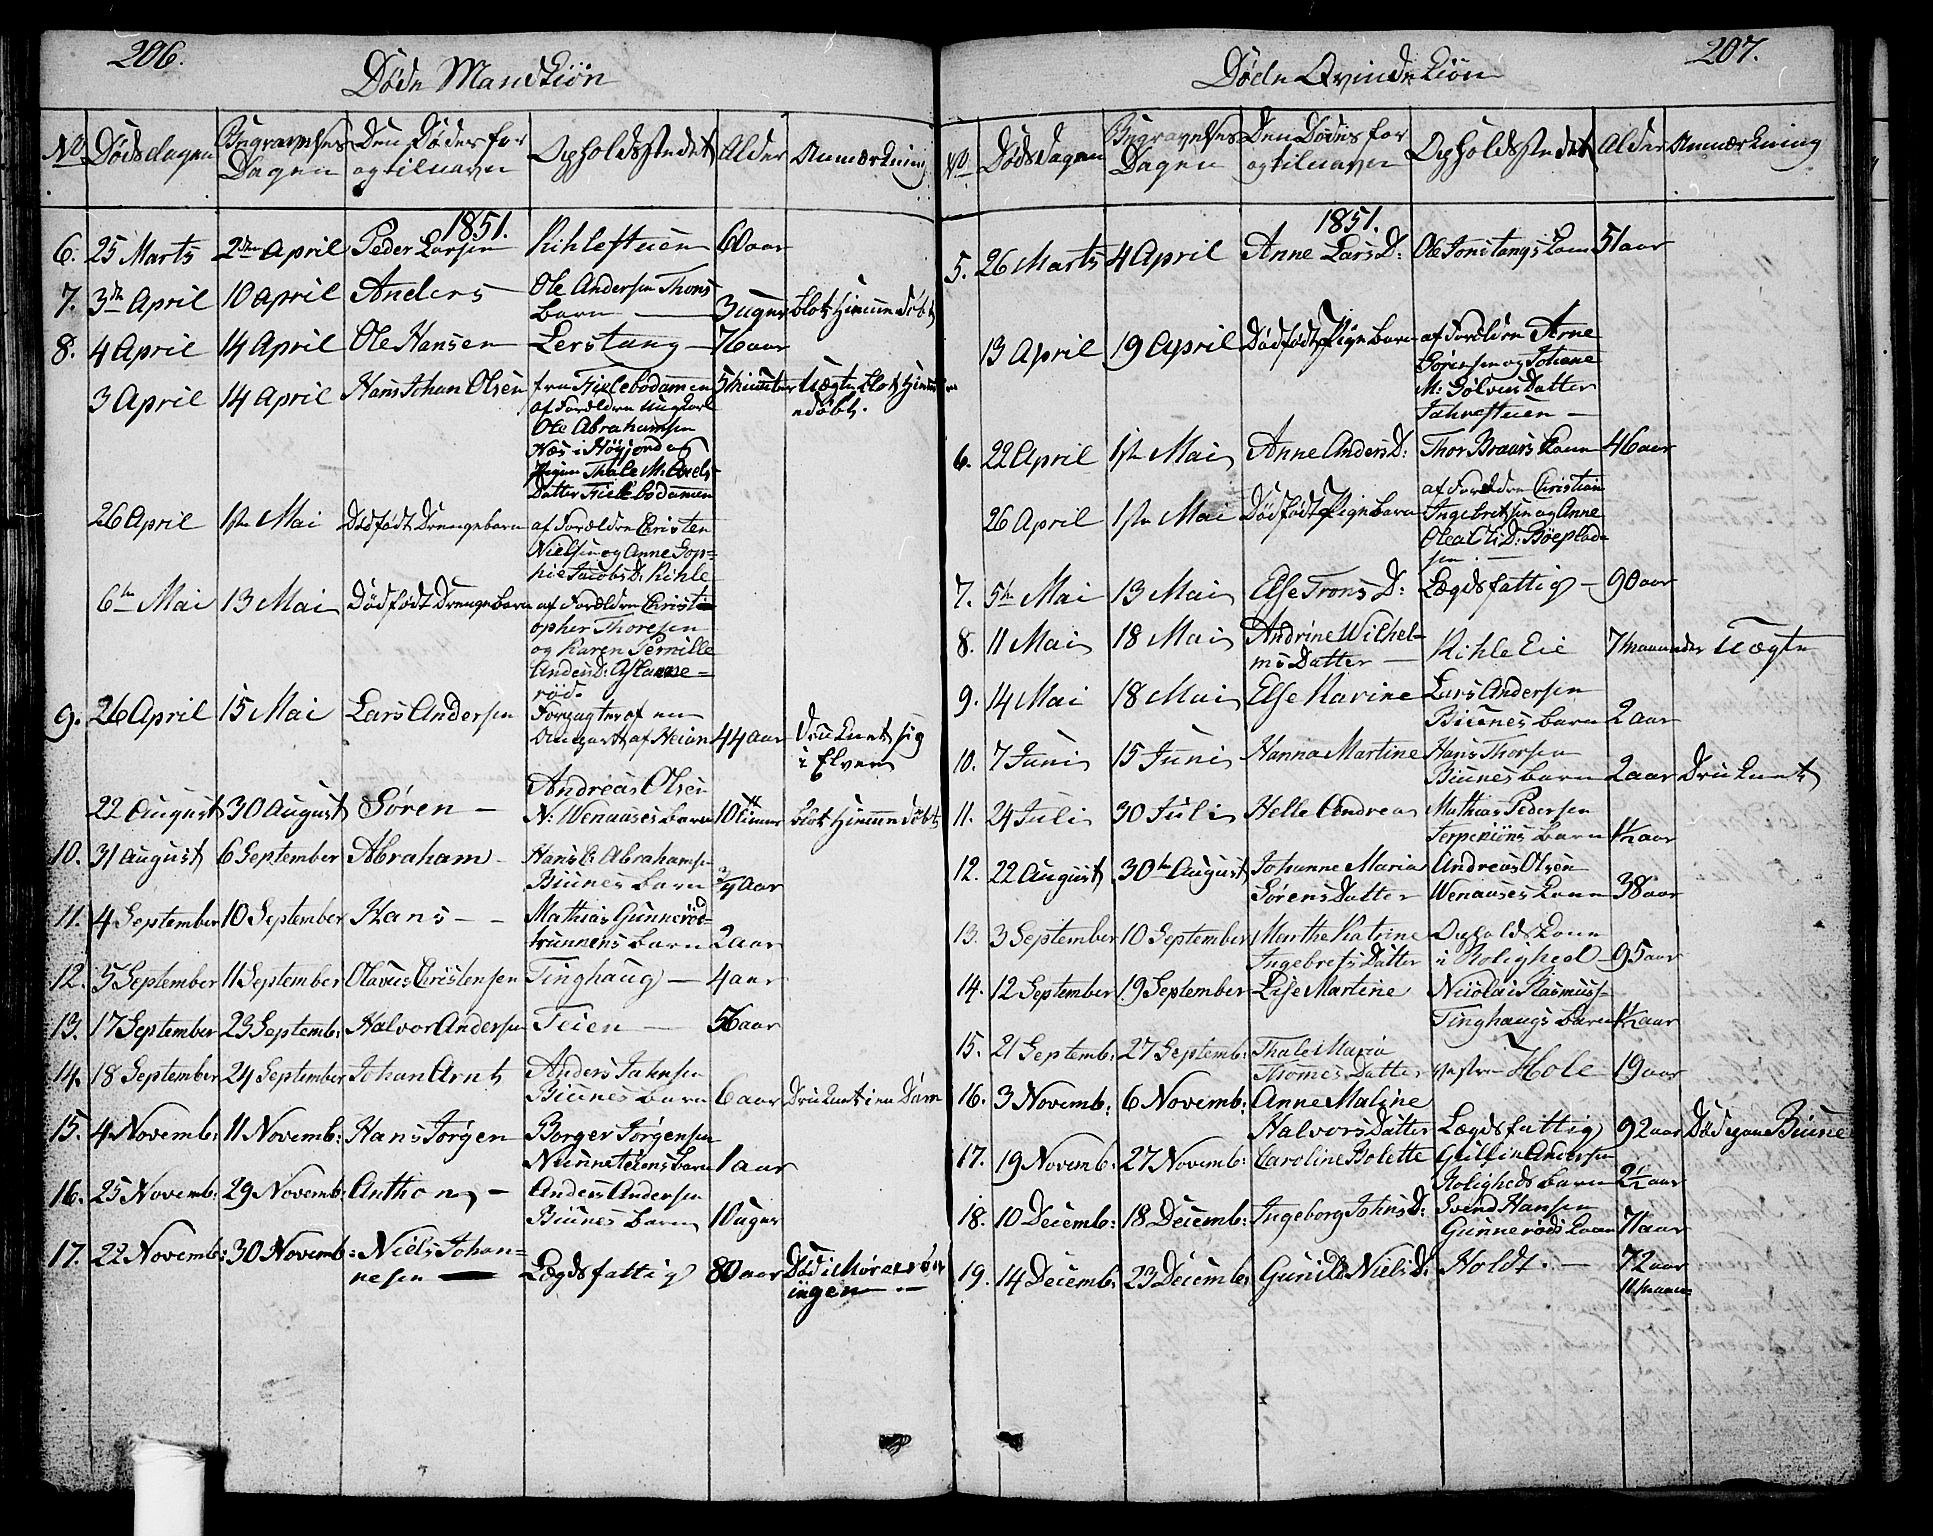 206.
Døde Mandkiøn
No Dødsdagen Begravelses Dagen Den Dødes for og tilnavn Opholdsstedet Alder Anmærkning
1851.
6. 25 Marts 2den April Peder Larsen Kihlestuen 60 aar
7. 3de April 10 April Anders Ole Andersen Thons
Barn 3 uger blot hiemmedøbt
8. 4 April 14 April Ole Hansen Lerstang 76 aar
3 April 14 April Hans Johan Olsen fra Fielebodamen 5 minuter uægte blot hiemme
af Forældre Ungkarl døbt.
Ole Abrahamsen
Næs i Høyjord og
Pigen Thale M. Axels
Datter Fielebodamen
26 April 1ste Mai Dødfødt Drengebarn af Forældre Christen
Nielsen og Anne Sop=
hie Jacobs D: Kihle
6te Mai 13 Mai Dødfødt Drengebarn af Forældre Christ
opher Thoresen
og Karen Pernille
Anders D:
rød.
9. 26 April 15 Mai Lars Andersen Forpagter af en
44 aar Druknet sig
i Elven
Andreas Olsen
22 August 30 August Søren N: Wenaases barn 10 Timer blot hiemmedøbt
10. 31 August 6 September Abraham Hans C. Abrahamsen
Biunes barn 3/4 Aar
11. 4 September 10 September Hans Mathias Gunnerød
barn 2 aar
12. 5 September 11 September Olavus Christensen Tinghaug 4 aar
13. 17 September 23 Septemb: Halvor Andersen Teien 56 aar
14. 18 September 24 September Johan Arnt Anders Jahnsen
Biunes barn 6 aar Druknet i en Dam
15. 4 Novemb: 11 Novemb: Hans Jørgen Borger Jørgensen
barn 1 aar
16. 25 Novemb: 29 Novemb: Anthon Anders Andersen
Biunes barn 10 uger
17. 22 Novemb: 30 Novemb: Niels Johan=
nesen Lægdsfattig 80 aar Død i
207.
Døde Qvindekiøn
No Dødsdagen Begravelses Dagen Den Dødes for og tilnavn Opholdsstedet Alder Anmærkning
1851.
5. 26 Marts 4 April Anne Lars D: Ole Jonstangs Kone 51 aar
13 April 19 April Dødfødt Pigebarn af Forældre Arne
Sørensen og Johane
M: Sølves Datter
Jahrestuen
6. 22 April 1ste Mai Anne Anders D: Thor Braars Kone 46 aar
26 April 1ste Mai Dødfødt Pigebarn af Forældre Christian
Ingebretsen og Anne
Olea D: Bøeplad=
sen
7. 5te Mai 13 Mai Else Trons D: Lægdsfattig 90 aar
8. 11 Mai 18 Mai Andrine Wilhel=
ms Datter Kihle Eie 7 maaneder Uægte
9. 14 Mai 18 Mai Else Karine Lars Andersen
Biunes barn 2 aar
10. 7 Juni 15 Juni Hanna Martine Hans Thorsen
Biunes barn 2 aar Druknet
11. 24 Juli 30 Juli Helle Andrea Mathias Pedersen
barn 1 1/2 aar
12. 22 August 30te August Johanne Maria Andreas Olsen
Sørens Datter Wenaases Kone 38 aar
13. 3 September 10 September Marthe Katrine Opholdskone
Ingebrets Datter i Rolighed 95 aar
14. 12 September 19 September Lise Martine Nicolai Rasmuss=
Tinghaugs barn 1 1/2 aar
15. 21 Septemb: 27 Septemb: Thale Maria
Thomes Datter Hole 19 aar
16. 3 Novemb: 6 Novemb: Anne Maline
Halvors Datter Lægdsfattig 92 aar Død paa Biune
17. 19 Novemb: 27 Novemb: Caroline Bolette Gulli Andersen
Roligheds barn 2 1/2 aar
18. 10 Decemb: 18 Decemb: Ingeborg Johns D: Svend Hansen
Gunnerøds Kone 71 aar
19. 14 Decemb: 23 Decemb: Gunild Niels D: Holdt. 72 aar
11 maan: